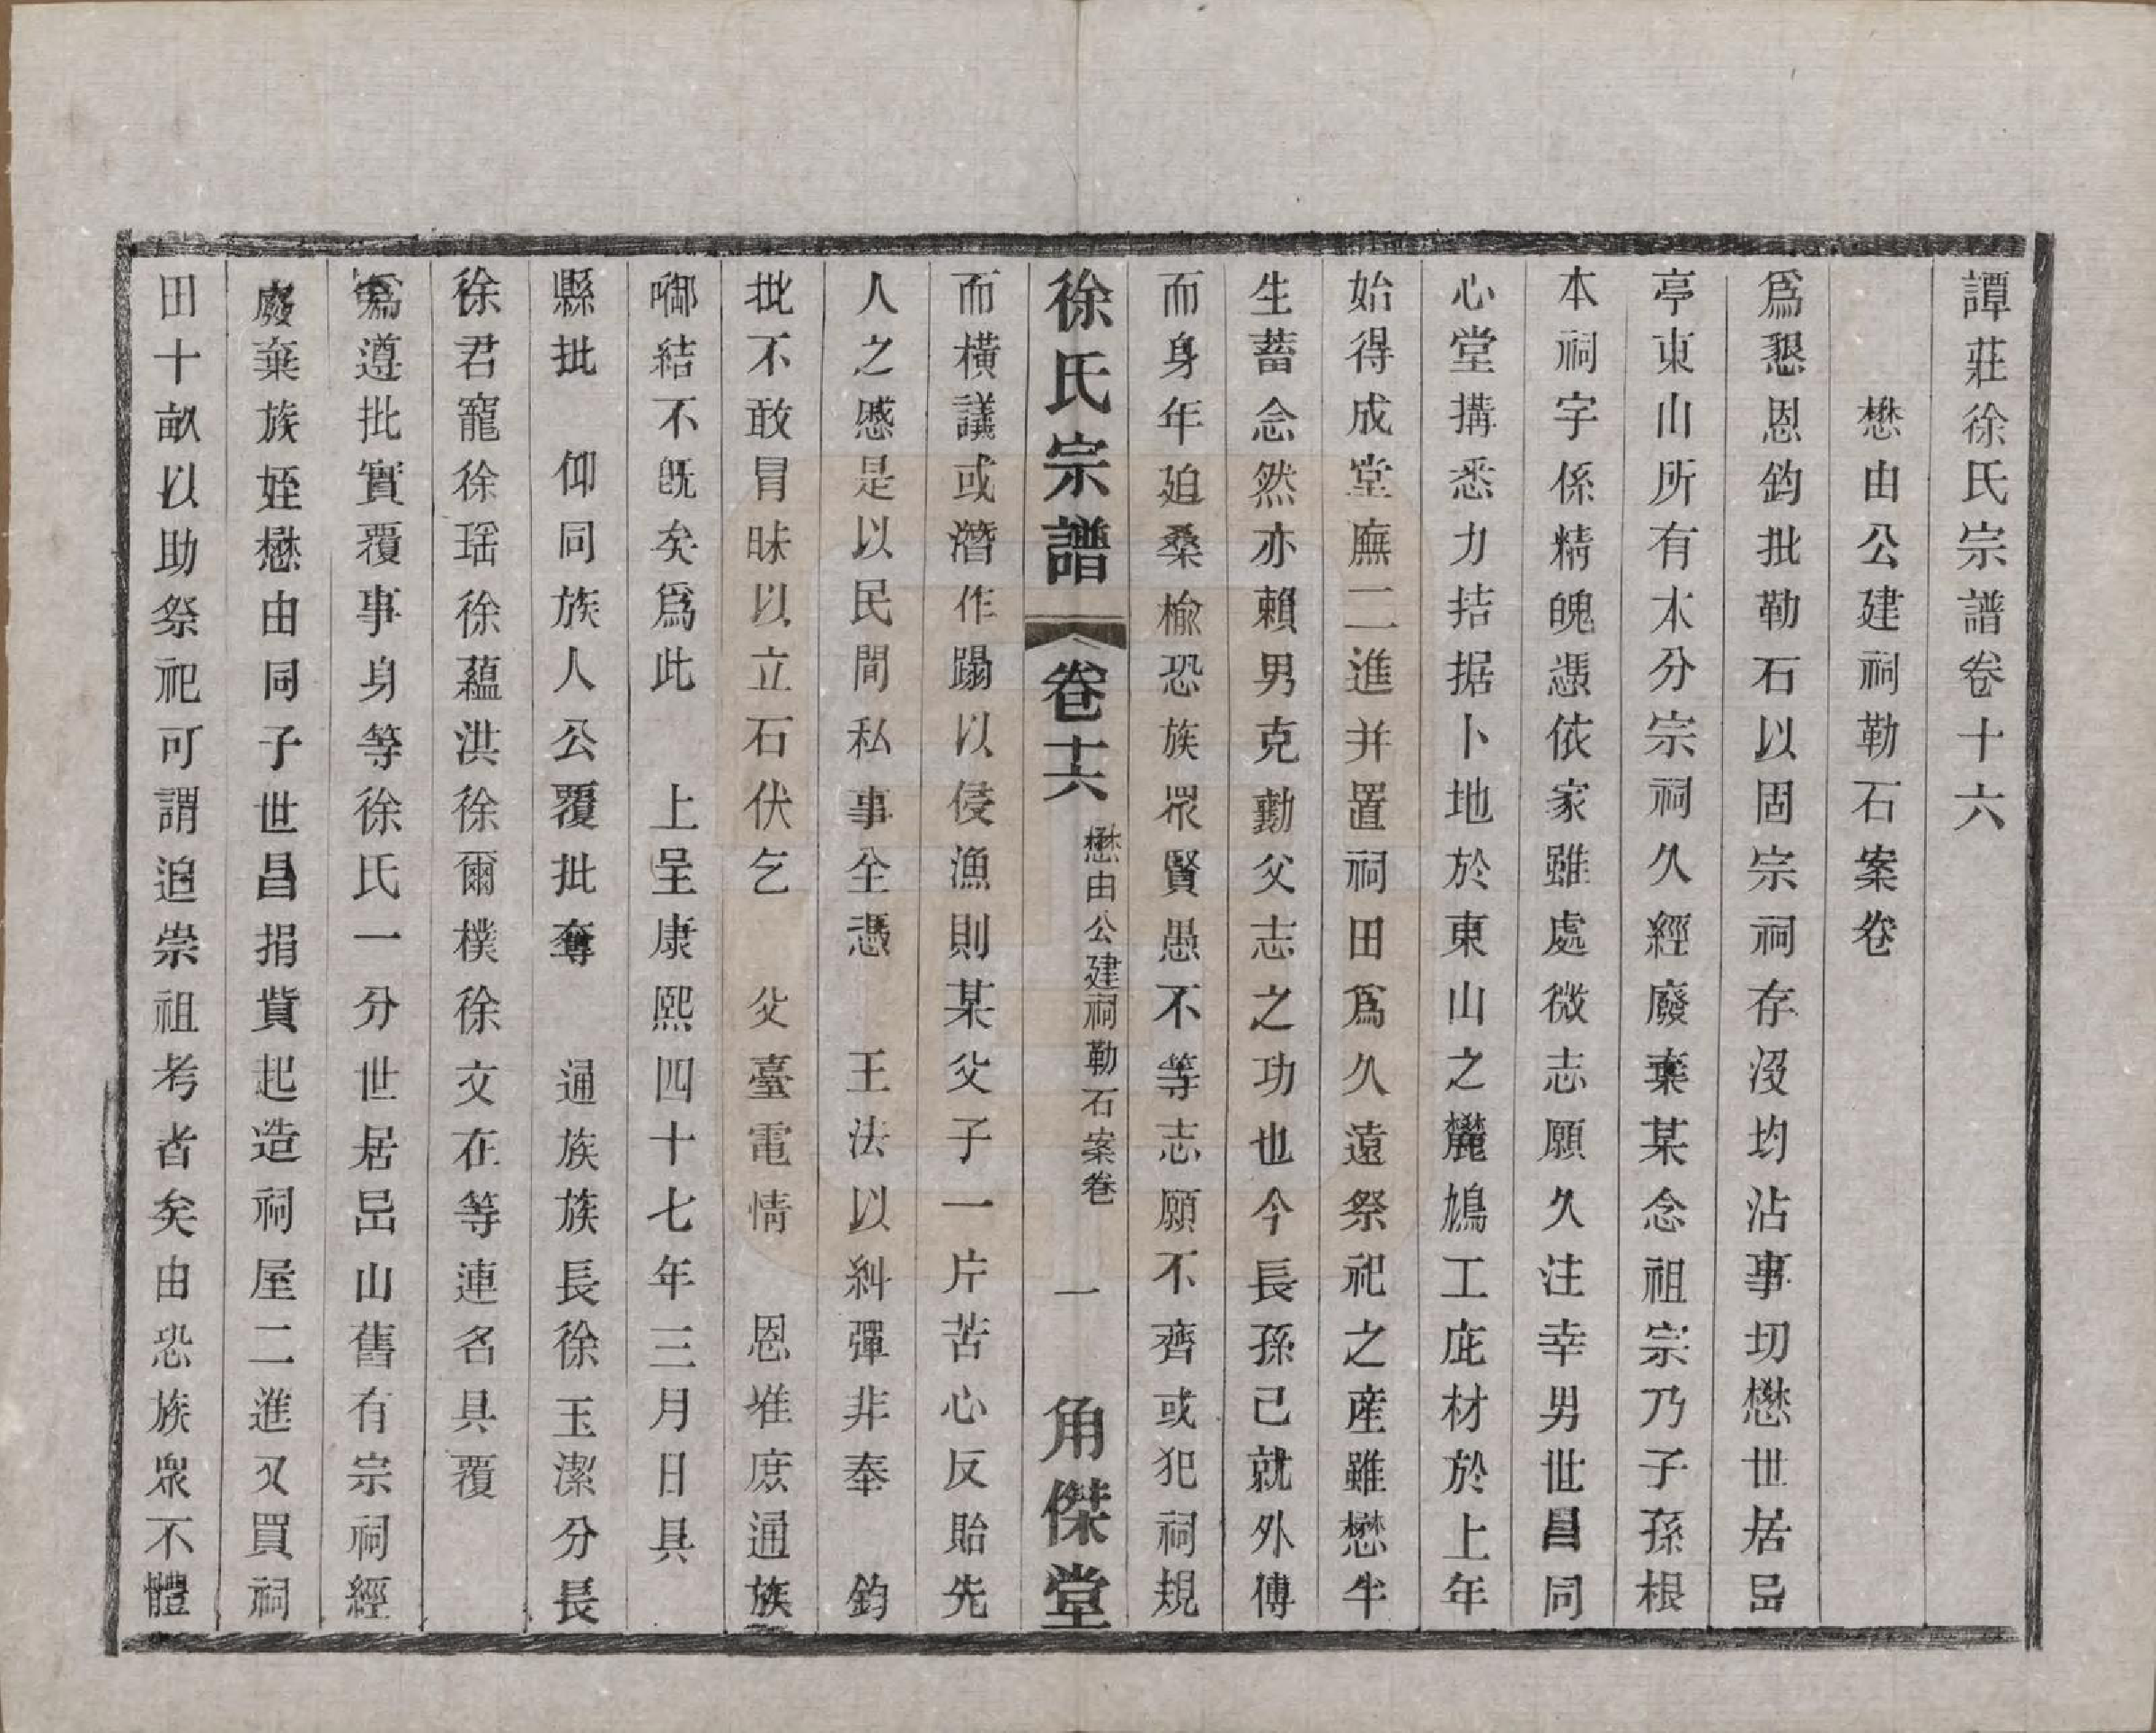 譚莊徐氏宗譜卷十六
懋由公建祠勒石案卷
爲懇恩鈞批勒石以固宗祠存沒均沾事切懋世居岊
亭東山所有本分宗祠久經廢棄某念祖宗乃子孫根
本祠宇係精魄憑依家雖處微志願久注幸男世昌同
心堂搆悉力拮据卜地於東山之麓鳩工庀材於上年
始得成堂廡二進并置祠田爲久遠祭祀之產雖懋半
生蓄念然亦賴男克勷父志之功也今長孫已就外傅
而身年廹桑榆恐族眾賢愚不等志願不齊或犯祠規
徐氏宗譜 卷十六 懋由公建祠勒石案卷 一 角傑堂
而橫議或潛作蹋以侵漁則某父子一片苦心反貽先
人之慼是以民間私事全憑 王法以糾彈非奉 鈞
批不敢冒昧以立石伏乞 父臺電情 恩准庶通族
啣結不既矣爲此 上呈康熙四十七年三月日具
縣批 仰同族人公覆批奪 通族族長徐玉潔分長
徐君寵徐瑶徐蘊洪徐爾樸徐文在等連名具覆
爲遵批實覆事身等徐氏一分世居岊山舊有宗祠經
廢棄族姪懋由同子世昌捐貲起造祠屋二進又買祠
田十畝以助祭祀可謂追崇祖考者矣由恐族眾不體